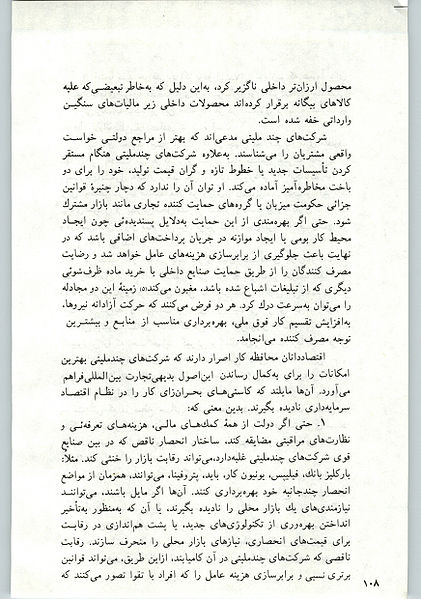 محصول ارزان‌تر داخلی ناگزیر کرد، به‌این دلیل که به‌خاطر تبعیضی‌که علیه
کالاهای بیگانه برقرار کرده‌اند محصولات داخلی زیر مالیات‌های سنگین
وارداتی خفه شده است.
شرکت‌های چند ملیتی مدعی‌اند که بهتر از مراجع دولتی خواست
واقعی مشتریان را می‌شناسند. به‌علاوه شرکت‌های چندملیتی هنگام مستقر
کردن تأسیسات جدید یا خطوط تازه و گران قیمت تولید، خود را برای
باخت مخاطره‌آمیز آماده می‌کند. او توان آن را ندارد که دچار چنبرهٔ قوانین
جزائی حکومت میزبان یا گروه‌های حمایت کننده تجاری مانند بازار مشترك
شود. حتی اگر بهره‌مندی از این حمایت به‌دلایل پسندیده‌ئی چون ایجاد
محیط کار بومی یا ایجاد موازنه در جریان پرداخت‌های اضافی باشد که در
نهایت باعث جلوگیری از برابرسازی هزینه‌های عامل خواهد شد و رضایت
مصرف کنندگان را از طریق حمایت صنایع داخلی با خرید ماده ظرف‌شوئی
دیگری که از تبلیغات اشباع شده باشد، مغبون می‌کند(۵) زمینهٔ این دو مجادله
را می‌توان به‌سرعت درك کرد. هر دو فرض می‌کنند که حرکت آزادانه نیروها،
به‌افزایش تقسیم کار فوق ملی، بهره‌برداری مناسب از منابع و بیشترین
توجه مصرف کننده می‌انجامد.
اقتصاددانان محافظه کار اصرار دارند که شرکت‌های چندملیتی بهترین
امکانات را برای به‌کمال رساندن این‌اصول بدیهی‌تجارت بین‌المللی‌فراهم
می‌آورد. آن‌ها مایلند که کاستی‌های بحران‌زای کار را در نظام اقتصاد
سرمایه‌داری نادیده بگیرند. بدین معنی که:
۱. حتی اگر دولت از همهٔ کمك‌های مالی، هزینه‌های تعرفه‌ئی و
نظارت‌های مراقبتی مضایقه کند، ساختار انحصار ناقص که در بین صنایع
قوی شرکت‌های چندملیتی غلبه‌دارد،می‌تواند رقابت بازار را خنثی کند. مثلاً:
بارکلیز بانك، فیلیپس، یونیون کار، باید، پتروفینا، می‌توانند، همزمان از مواضع
انحصار چندجانبه خود بهره‌برداری کنند. آن‌ها اگر مایل باشند، می‌توانند
نیازمندی‌های یك بازار محلی را نادیده بگیرند، یا آن که به‌منظور به‌تأخیر
انداختن بهره‌وری از تکنولوژی‌های جدید، یا پشت هم‌اندازی در رقابت
برای قیمت‌های انحصاری، نیازهای بازار محلی را منحرف سازند. رقابت
ناقصی که شرکت‌های چندملیتی در آن کامیابند، ازاین طریق، می‌تواند قوانین
برتری نسبی و برابرسازی هزینه عامل را که افراد با تقوا تصور می‌کنند که
۱۰۸